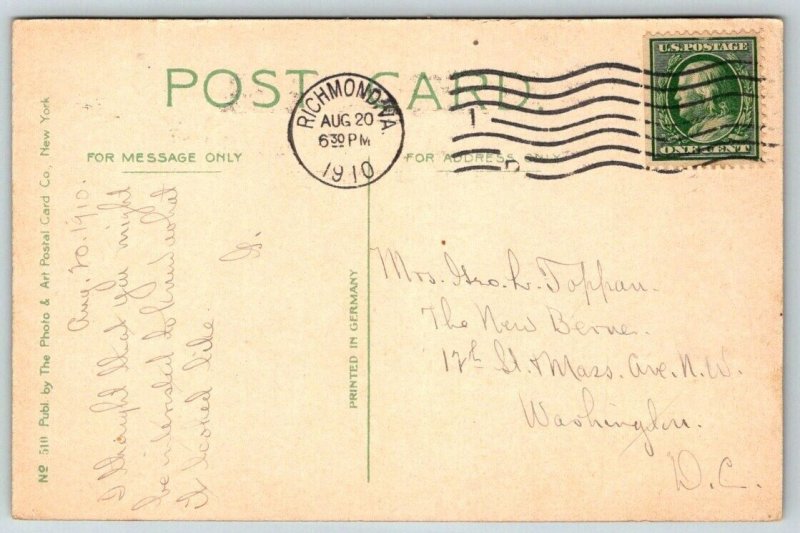 POST CARD.
RICHMOND, VA.
AUG 20
6 30 PM
1910
U.S. POSTAGE
ONE CENT
FOR MESSAGE ONLY
FOR ADDRESS ONLY
Aug. 20. 1910.
I thought that you might
be interested to know what
it looked like.
G.
Mrs. Geo. L. Toppan.
The New Berne.
12th St. & Mass. Ave. N.W.
Washington.
D.C.
PRINTED IN GERMANY
No 510 Publ. by The Photo & Art Postal Card Co., New York